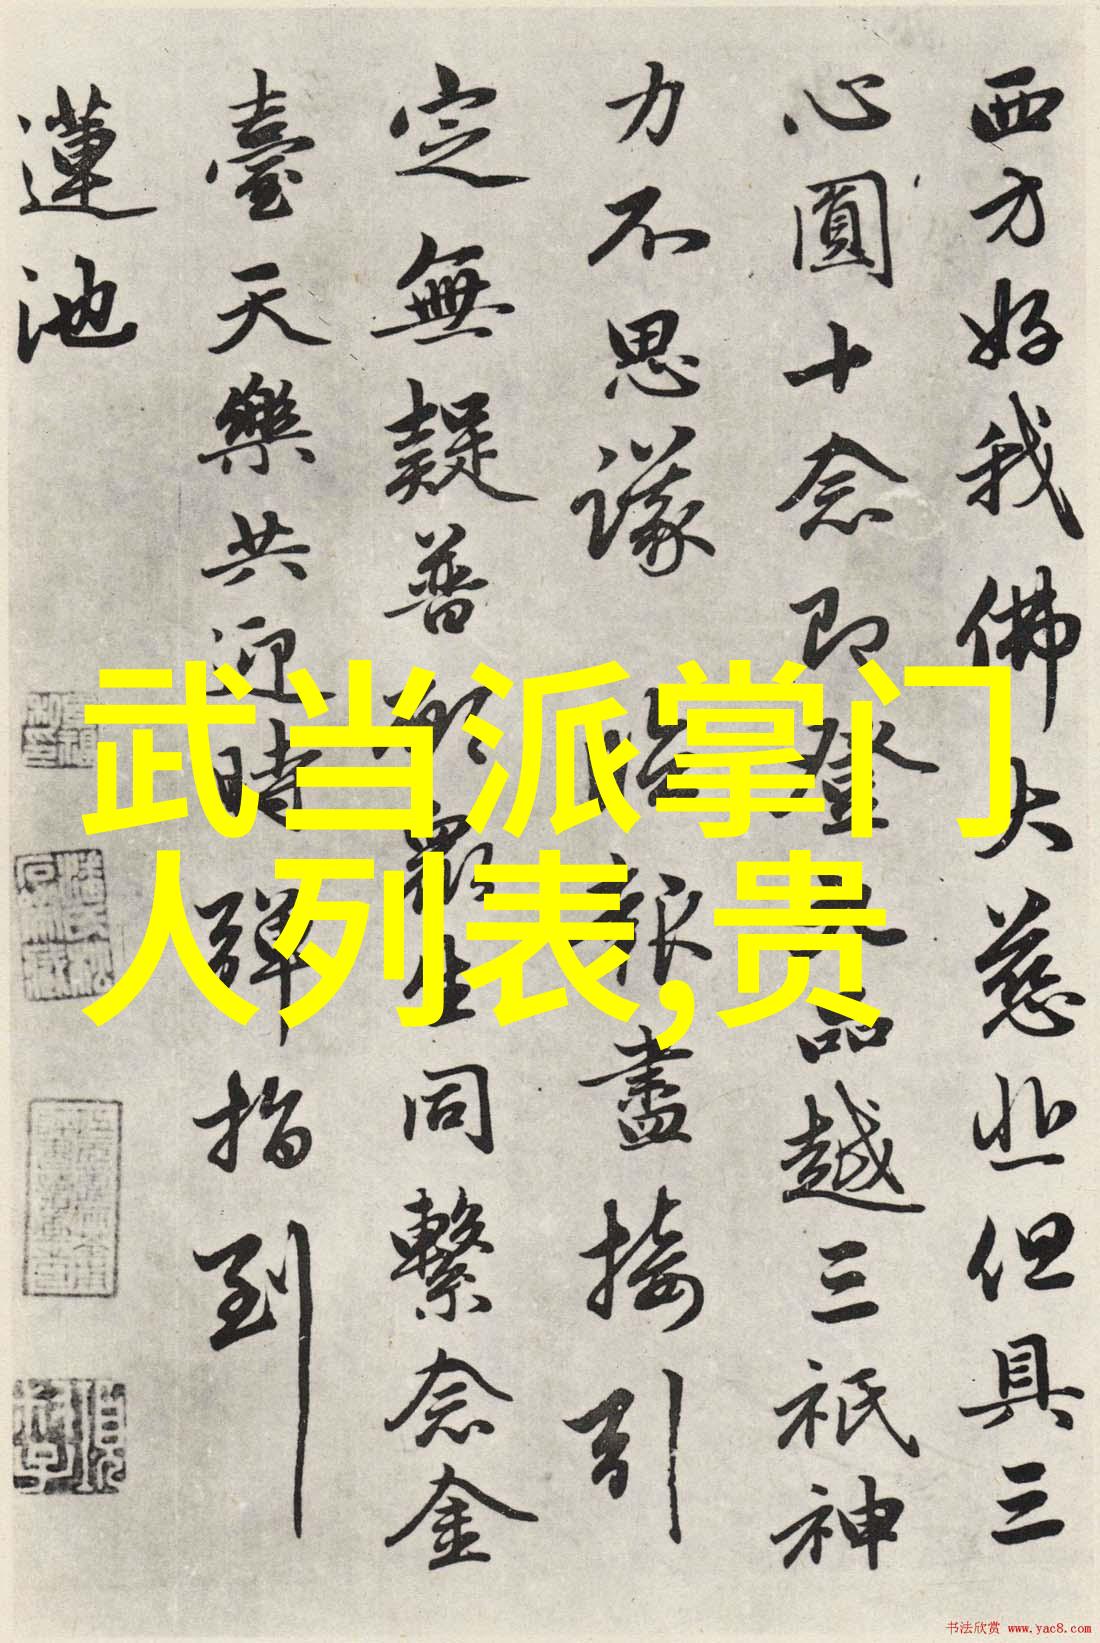 西方好我佛大慈悲但具三
心圓十念即登品越三祇神
力不思議臨報盡接引
定無疑普願眾生同繫念金
臺天樂共迎時彈指到
蓮池
武当派掌门
人列表,贵
书法欣赏 www.yac8.com